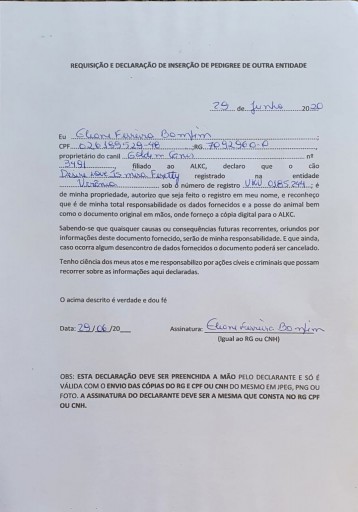 REQUISIÇÃO E DECLARAÇÃO DE INSERÇÃO DE PEDIGREE DE OUTRA ENTIDADE
29 de Junho 2020
Eu Eliane Ferreira Bomfim;
CPF 026189529-48 RG 7092960-0
proprietário do canil Golden Genis nº
3491, filiado ao ALKC, declaro que o cão
registrado na entidade
sob o número de registro VKU 0185.244; é
de minha propriedade, autorizo que seja feito o registro em meu nome, e reconheço
que é de minha total responsabilidade os dados fornecidos e a posse do animal bem
como o documento original em mãos, onde forneço a cópia digital para o ALKC.
Sabendo-se que quaisquer causas ou consequências futuras recorrentes, oriundos por
informações deste documento fornecido, serão de minha responsabilidade. E que ainda,
caso ocorra algum desencontro de dados fornecidos o documento poderá ser cancelado.
Tenho ciência dos meus atos e me responsabilizo por ações cíveis e criminais que possam
recorrer sobre as informações aqui declaradas.
O acima descrito é verdade e dou fé
Data: 29/06/20__ Assinatura: Eliane Ferreira Bomfim
(Igual ao RG ou CNH)
OBS: ESTA DECLARAÇÃO DEVE SER PREENCHIDA A MÃO PELO DECLARANTE E SÓ É
VÁLIDA COM O ENVIO DAS CÓPIAS DO RG E CPF OU CNH DO MESMO EM JPEG, PNG OU
FOTO. A ASSINATURA DO DECLARANTE DEVE SER A MESMA QUE CONSTA NO RG CPF
OU CNH.